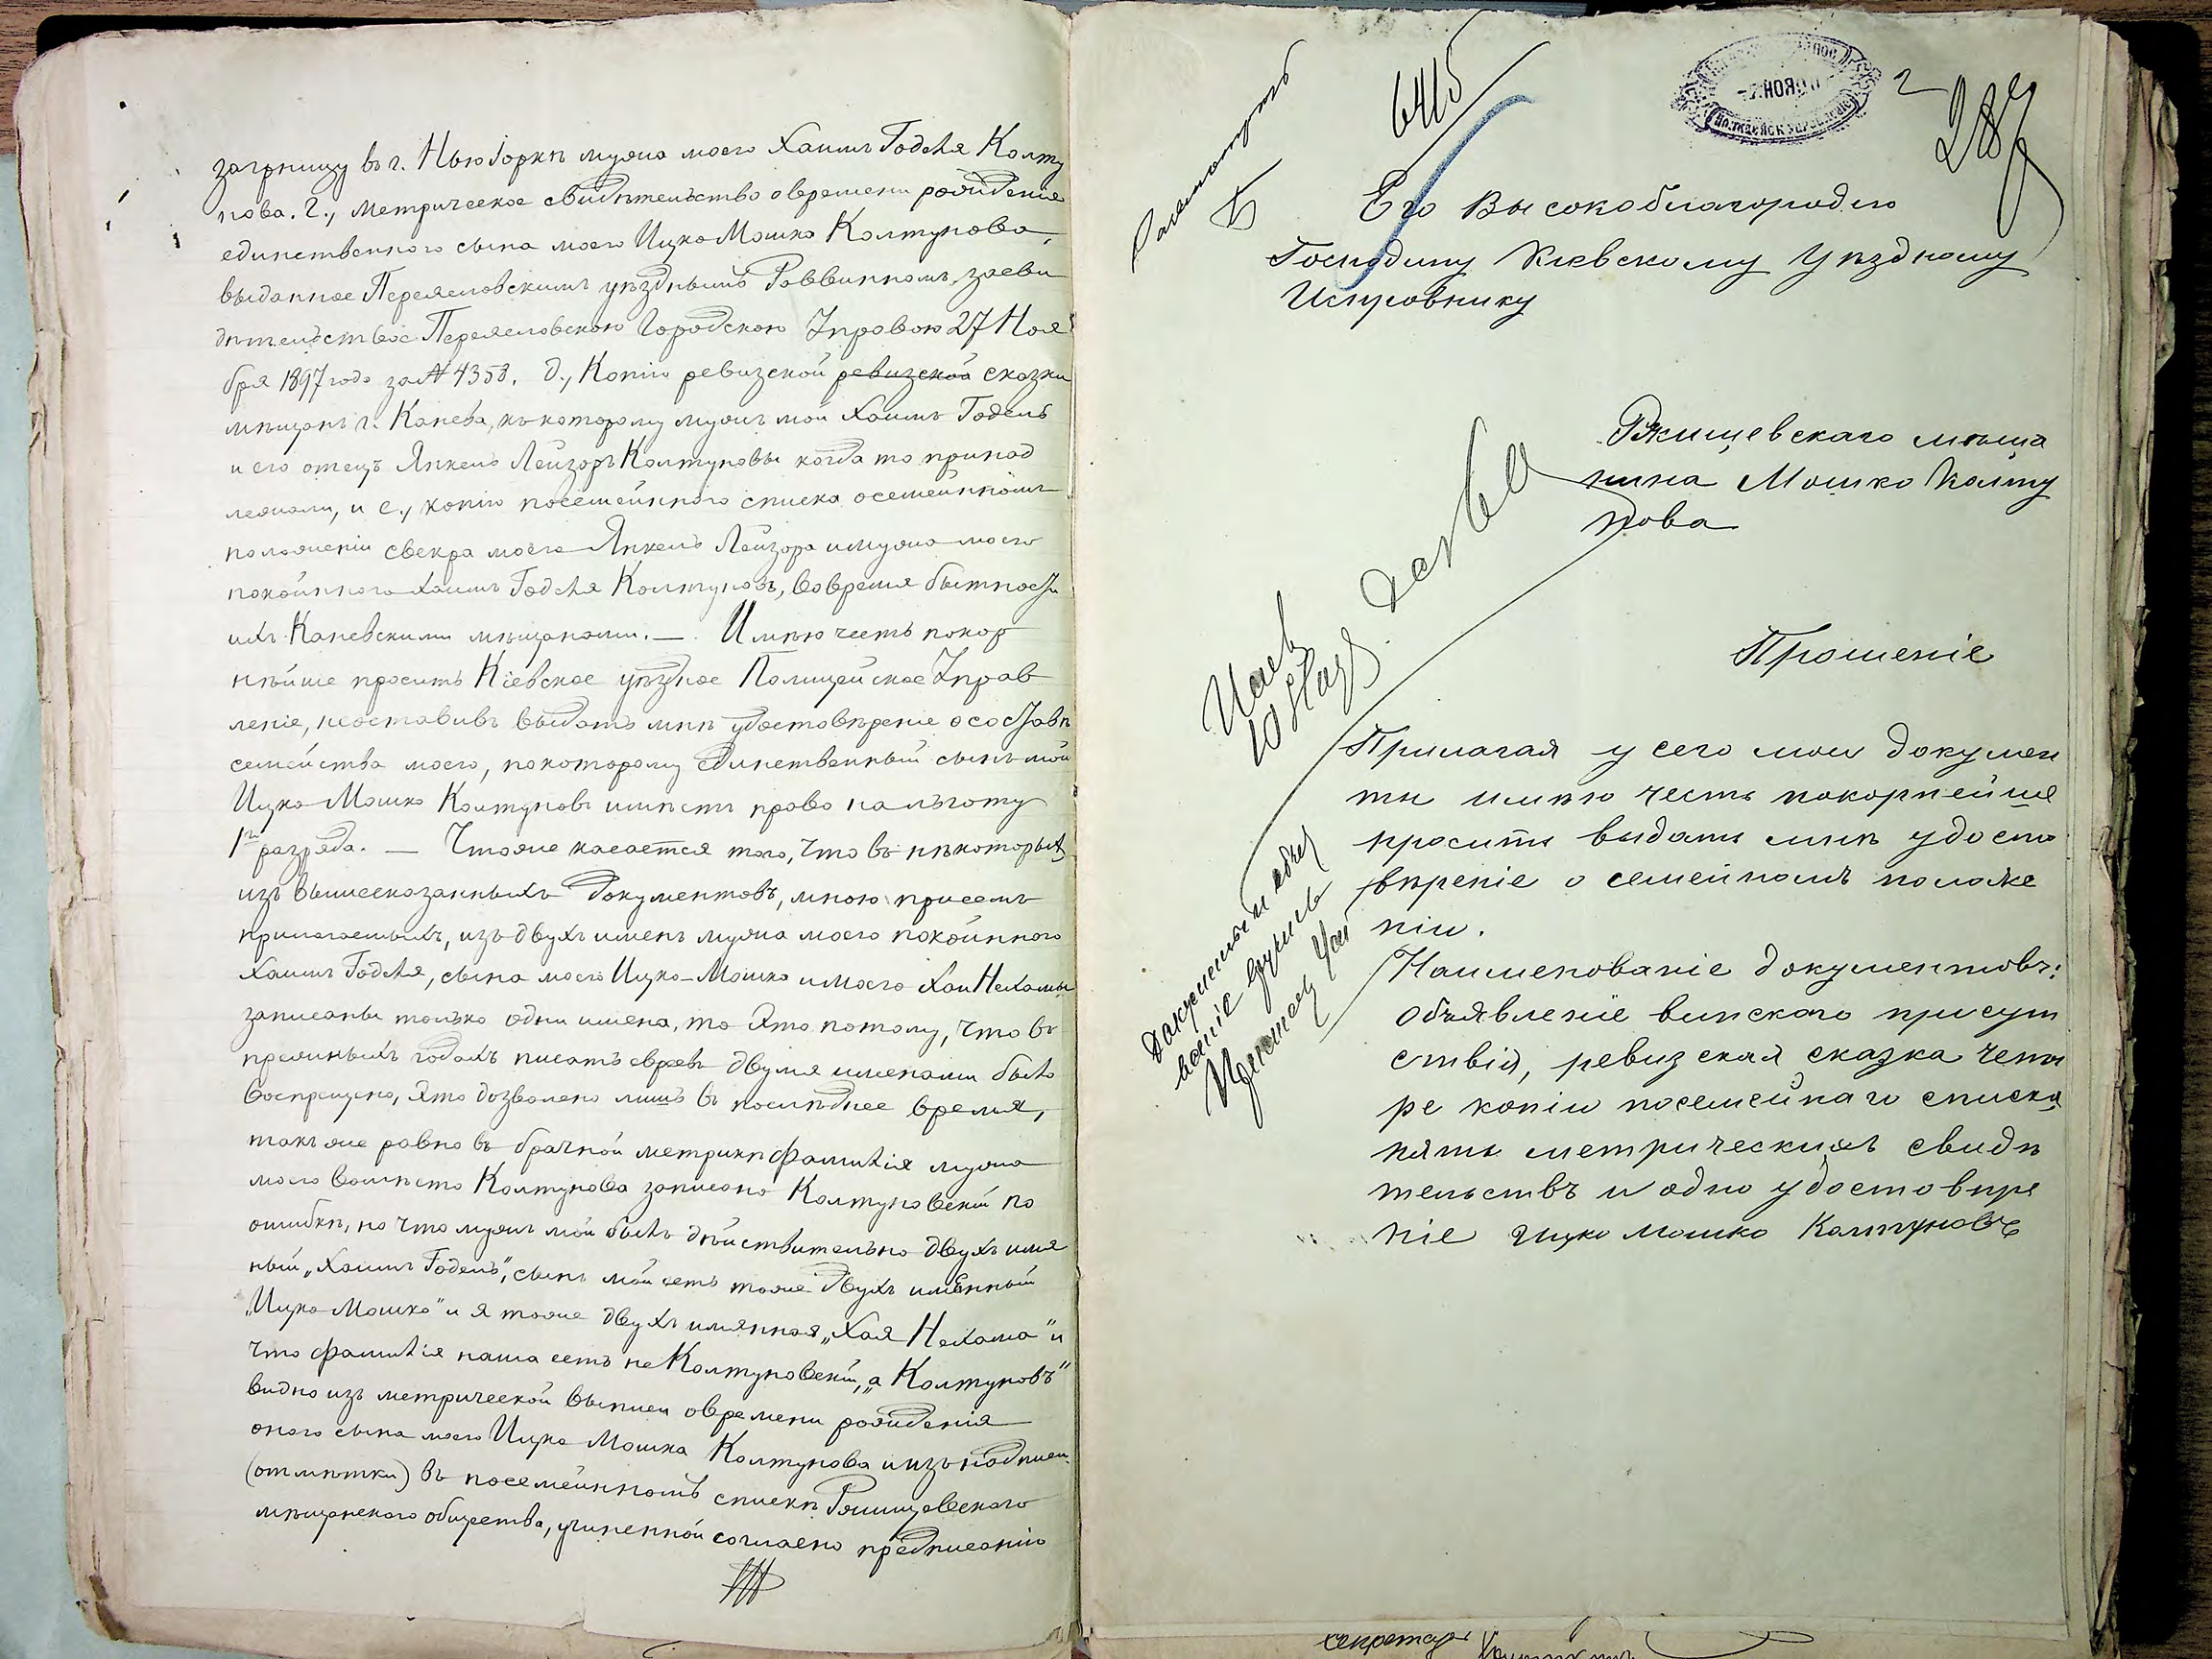 заграницу въ г. Нью Іоркъ мужа моего Хаимъ Годеля Колту
нова. г., метрическое свидѣтельство о времени рожденія
единственнаго сына моего Ицко Мошко Колтунова,
выданное Переяславскимъ уѣзднымъ Раввиномъ, засви
дѣтельствов. Переяславскою Городскою Управою 27 Ноя
бря 1897 года за № 4358. д., Копію ревизской ревизской сказки
мѣщанъ г. Канева, къ которому мужъ мой Хаимъ Годель
и его отецъ Янкель Лейзоръ Колтуновы когда то принад
лежали, и е., копію посемейнного списка о семейнномъ
положеніи свекра моего Янкель Лейзора и мужа моего
покойнного Хаимъ Годеля Колтуновъ, во время бытности
ихъ Каневскими мѣщанами. — Имѣю честь покор
нѣйше просить Кіевское уѣздное Полицейское Управ
леніе, неоставивъ выдать мнѣ удостовѣреніе о составѣ
семейства моего, по которому единственный сынъ мой
Ицко-Мошко Колтуновъ имѣетъ право на льготу
1го разряда. — Чтоже касается того, что въ нѣкоторыхъ
изъ вышесказанныхъ документовъ, мною присемъ
прилагаемыхъ, изъ двухъ именъ мужа моего покойнного
Хаимъ Годеля, сына моего Ицко-Мошко и моего Хаи Нехамы
записаны только одни имена, то это потому, что въ
прежныхъ годахъ писать евреевъ двумя именами было
воспрещено, это дозволено лишь въ послѣднее время,
такъ же равно въ брачной метрикѣ фамилія мужа
моего вомѣсто Колтунова записано Колтуновскій по
ошибкѣ, но что мужъ мой былъ дѣйствительно двухъ имя
ный „Хаимъ Годель“, сынъ мой есть тоже двухъ именный
„Ицко Мошко“ и я тоже двухъ имянная „Хая Нехама“ и
что фамилія наша есть не Колтуновскій, „а Колтуновъ“
видно изъ метрической выписи о времени рожденія
оного сына моего Ицко Мошка Колтунова и изъ надписи
(отмѣтки) въ посемейнномъ спискѣ Ржищевского
мѣщанского общества, учиненной согласно предписанію
6415
287
Его Высокоблагородію
Господину Кіевскому Уѣздному
Исправнику
Ржищевскаго мѣща
нина Мошко Колту
нова
Прошеніе
Прилагая у сего мои докумен
ты имѣю честь покорнейше
просить выдать мнѣ удосто
вѣреніе о семейномъ положе
ніи.
Наименованіе документовъ:
объявленіе винского присут
ствія, ревизская сказка четы
ре копіи посемейнаго списка,
пять метрическихъ свидѣ
тельствъ и одно удостовѣре
ніе Ицко Мошко Колтуновъ
секретарь